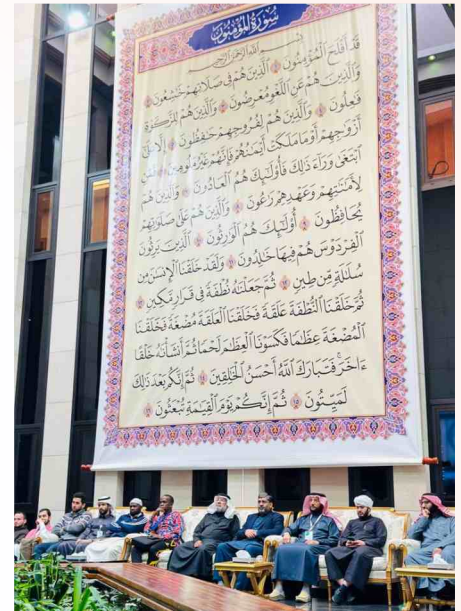 سُورَةُ المُؤْمِنُونَ
بِسْمِ اللَّهِ الرَّحْمَٰنِ الرَّحِيمِ
قَدْ أَفْلَحَ الْمُؤْمِنُونَ ١ الَّذِينَ هُمْ فِي صَلَاتِهِمْ خَاشِعُونَ ٢
وَالَّذِينَ هُمْ عَنِ اللَّغْوِ مُعْرِضُونَ ٣ وَالَّذِينَ هُمْ لِلزَّكَوٰةِ
فَاعِلُونَ ٤ وَالَّذِينَ هُمْ لِفُرُوجِهِمْ حَافِظُونَ ٥ إِلَّا عَلَىٰ
أَزْوَاجِهِمْ أَوْ مَا مَلَكَتْ أَيْمَانُهُمْ فَإِنَّهُمْ غَيْرُ مَلُومِينَ ٦ فَمَنِ
ابْتَغَىٰ وَرَاءَ ذَٰلِكَ فَأُولَٰئِكَ هُمُ الْعَادُونَ ٧ وَالَّذِينَ هُمْ
لِأَمَانَاتِهِمْ وَعَهْدِهِمْ رَاعُونَ ٨ وَالَّذِينَ هُمْ عَلَىٰ صَلَوَاتِهِمْ
يُحَافِظُونَ ٩ أُولَٰئِكَ هُمُ الْوَارِثُونَ ١٠ الَّذِينَ يَرِثُونَ
الْفِرْدَوْسَ هُمْ فِيهَا خَالِدُونَ ١١ وَلَقَدْ خَلَقْنَا الْإِنسَانَ مِن
سُلَالَةٍ مِّن طِينٍ ١٢ ثُمَّ جَعَلْنَاهُ نُطْفَةً فِي قَرَارٍ مَّكِينٍ ١٣
ثُمَّ خَلَقْنَا النُّطْفَةَ عَلَقَةً فَخَلَقْنَا الْعَلَقَةَ مُضْغَةً فَخَلَقْنَا
الْمُضْغَةَ عِظَامًا فَكَسَوْنَا الْعِظَامَ لَحْمًا ثُمَّ أَنشَأْنَاهُ خَلْقًا
ءَاخَرَ فَتَبَارَكَ اللَّهُ أَحْسَنُ الْخَالِقِينَ ١٤ ثُمَّ إِنَّكُم بَعْدَ ذَٰلِكَ
لَمَيِّتُونَ ١٥ ثُمَّ إِنَّكُمْ يَوْمَ الْقِيَامَةِ تُبْعَثُونَ ١٦